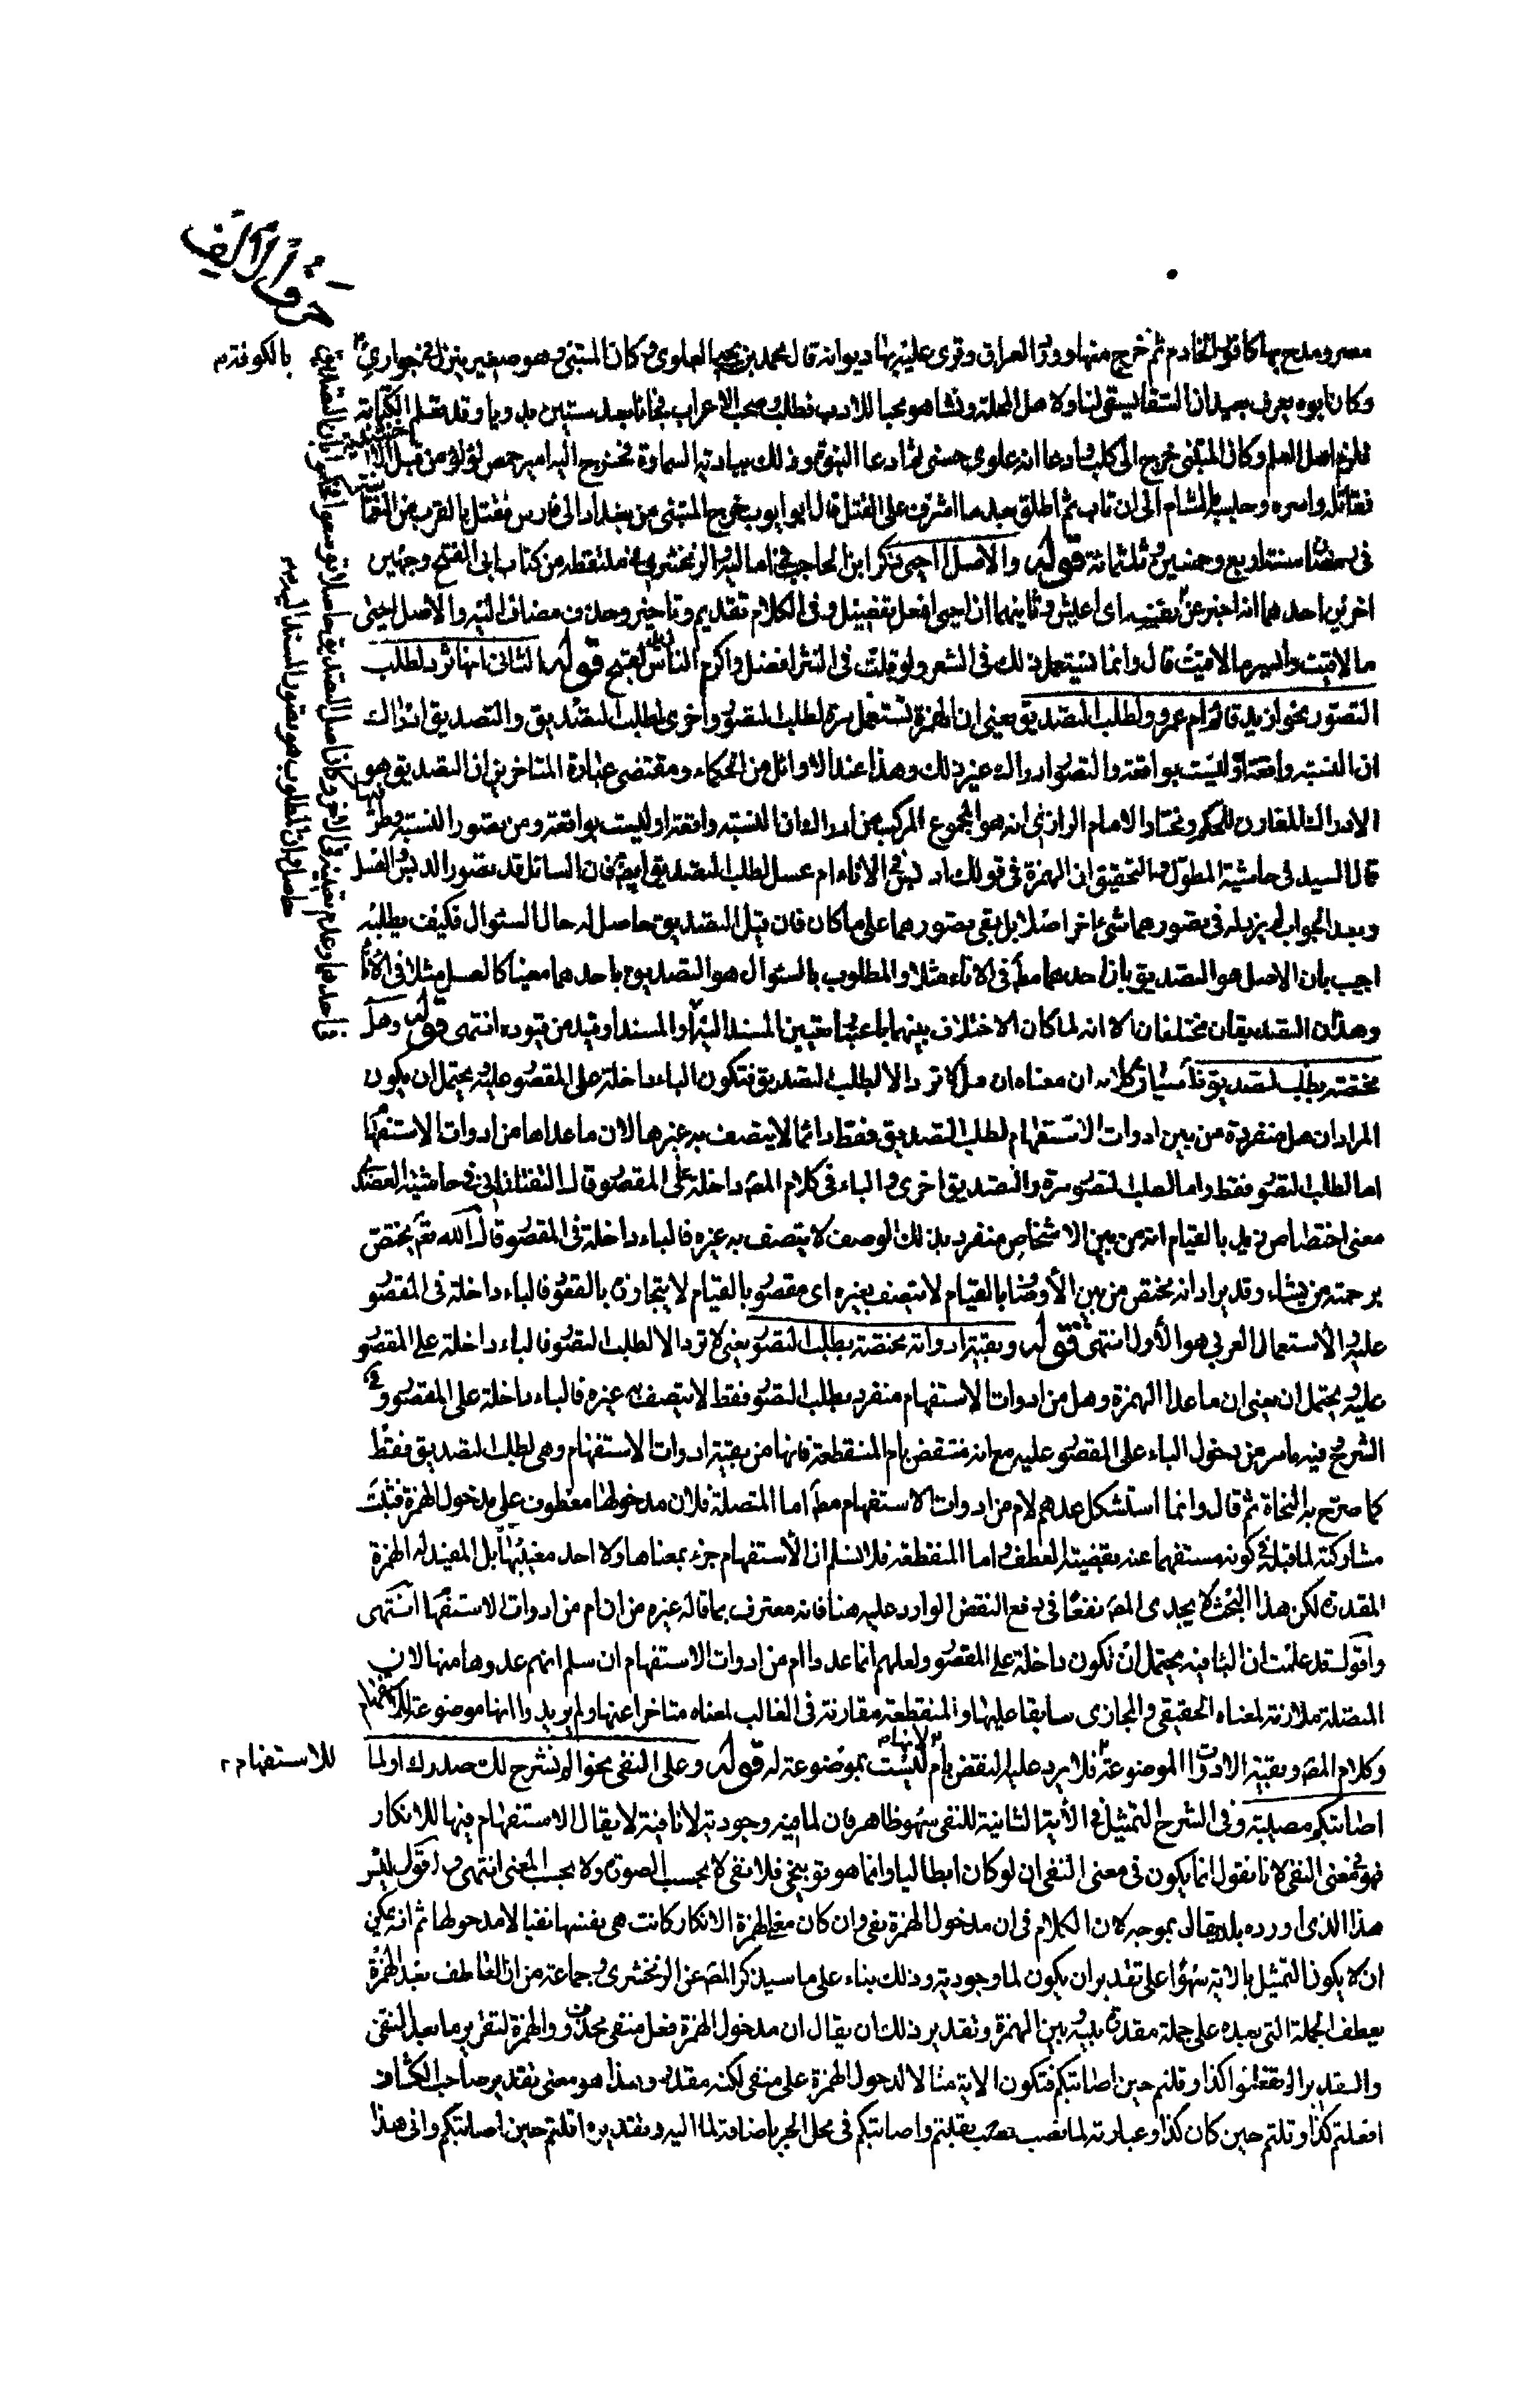 حرف الألف
مصر ومدح بها كافور الخادم ثم خرج منها وورد العراق وقرئ عليه بها ديوانه قال محمد بن يحيى العلوي كان المتنبي وهو صغير ينزل في جواري
بالكوفة
وكان ابوه يعرف بعيدان السقا يستقي لنا ولاهل المحلة ونشا هو محبا للادب فطلبه وصحب الاعراب فجانا بعد سنتين بدويا وقد تعلم الكتابة
فلزم اهل العلم وكان المتنبي خرج الى كلب وادعا انه علوي حسني ثم ادعا النبوة وذلك ببادية السماوة فخرج اليه امير حمص لؤلؤ من قبل الاخشيدية
فقاتله واسره وحبسه بالشام الى ان تاب ثم اطلق بعد ما اشرف على القتل قال ابو ايوب خرج المتنبي من بغداد الى فارس فقتل بالقرب من النعمانية
في رمضان سنة اربع وخمسين وثلثمائة قوله والاصل احيى ذكر ابن الحاجب في اماليه والزمخشري فيما ملتقطه من كتاب ابي الفتح وجهين
اخرين احدهما انه اخبر عن نفسه اى اعيش وثانيهما ان احيى افعل تفضيل وفى الكلام تقديم وتاخير وحذف مضاف اليه والاصل احيى
ما لاقيت وايسر ما لاقيت قال وانما يستعمل ذلك فى الشعر ولو قلت فى النثر افضل واكرم الناس زيد لقبح قوله الثانى انها ترد لطلب
التصور نحو ازيد قائم ام عمرو ولطلب التصديق يعنى ان الهمزة تستعمل مرة لطلب التصور واخرى لطلب التصديق والتصديق ادراك
ان النسبة واقعة او ليست بواقعة والتصور ادراك غير ذلك وهذا عند الاوائل من الحكماء ومقتضى عبارة المتاخرين ان التصديق هو
الادراك المقارن للحكم ومختار الامام الرازى انه هو المجموع المركب من ادراك ان النسبة واقعة او ليست بواقعة ومن تصور النسبة وطرفيها
قال السيد فى حاشية المطول التحقيق ان الهمزة فى قولك ادبس فى الاناء ام عسل لطلب التصديق ايضا فان السائل قد تصور الدبس والعسل
وبعد الجواب لم يزد له فى تصورهما شئ اخر اصلا بل بقى تصورهما على ما كان فان قيل التصديق حاصل له حال السؤال فكيف يطلبه
اجيب بان الاصل هو التصديق بان احدهما مط فى الاناء مثلا والمطلوب بالسؤال هو التصديق باحدهما معينا كالعسل مثلا فى الاناء
وهذان التصديقان مختلفان الا انه لما كان الاختلاف بينهما باعتبار تعيين المسند اليه او المسند او قيد من قيوده انتهى قوله وهل
مختصة بطلب التصديق ان معناه ان هل لا ترد الا لطلب التصديق فتكون الباء داخلة على المقصور عليه ويحتمل ان يكون
المراد ان هل منفردة من بين ادوات الاستفهام لطلب التصديق فقط دائما لا يتصف به غيرها لان ما عداها من ادوات الاستفهام
اما لطلب التصور فقط واما لطلب التصور مرة والتصديق اخرى والباء فى كلام المص داخلة على المقصور قال التفتازانى فى حاشية العضدى
معنى اختصاص زيد بالقيام انه من بين الاشخاص منفرد بذلك الوصف لا يتصف به غيره فالباء داخلة فى المقصور قال الله تع يختص
برحمته من يشاء وقد يراد انه مختص من بين الاوصاف بالقيام لا يتصف بغيره اى مقصور بالقيام لا يتجاوزه بالقعود فالباء داخلة فى المقصور
عليه والاستعمال العربى هو الاول انتهى قوله وبقية ادواته مختصة بطلب التصور يعنى لا ترد الا لطلب التصور فالباء داخلة على المقصور
عليه ويحتمل ان يعنى ان ما عدا الهمزة وهل من ادوات الاستفهام منفرد بطلب التصور فقط لا يتصف به غيره فالباء داخلة على المقصور وفى
الشرح فيه ما مر من دخول الباء على المقصور عليه مع انه منتقض بام المنقطعة فانها من بقية ادوات الاستفهام وهى لطلب التصديق فقط
كما صرح به النحاة ثم قال وانما استشكل عدهم لام من ادوات الاستفهام مط اما المتصلة فلان مدخولها معطوف على مدخول الهمزة فثبت
مشاركته لما قبله فى كونه مستفهما عنه بقضية العطف واما المنقطعة فلا نسلم ان الاستفهام جزء معناها ولا احد معنييها بل المفيد له الهمزة
المقدرة لكن هذا البحث لا يجدى المص نفعا فى دفع النقض الوارد عليه هنا فانه معترف بما قاله غيره من ان ام من ادوات الاستفهام انتهى
واقول قد علمت ان البا فيه يحتمل ان تكون داخلة على المقصور ولعلهم انما عدوا ام من ادوات الاستفهام ان سلم انهم عدوها منها لان
المتصلة ملازمة لمعناه الحقيقى والمجازى سابقا عليها والمنقطعة مقارنة فى الغالب لمعناه متاخرا عنها ولم يريدوا انها موضوعة للاستفهام
وكلام المص وبقية الادوات الموضوعة للاستفهام فلا يرد عليه النقض بام لانها ليست بموضوعة له قوله وعلى النفى نحو الم نشرح لك صدرك اولما
اصابتكم مصيبة وفى الشرح التمثيل فى الآية الثانية للنفى سهو ظاهر فان لما فيه وجودية لا نافية لا يقال الاستفهام فيها للانكار
فهو فى معنى النفى لانا نقول انما يكون فى معنى النفى ان لو كان ابطاليا وانما هو توبيخى فلا نفى لا بحسب الصورة ولا بحسب المعنى انتهى واقول ليس
هذا الذى اورده بل يقال بموجبه لان الكلام فى ان مدخول الهمزة نفى وان كان معنى الهمزة الانكار كانت هى بنفسها نفيا لا مدخولها ثم انه يمكن
ان لا يكون التمثيل بالاية سهوا على تقدير ان يكون لما وجودية وذلك بناء على ما سيذكر المص عن الزمخشرى وجماعة من ان العاطف بعد الهمزة
يعطف الجملة التى بعده على جملة مقدرة بينه وبين الهمزة وتقدير ذلك ان يقال ان مدخول الهمزة فعل منفى محذوف والهمزة لتقرير ما بعد النفى
والتقدير الم تفعلوا كذا وقلتم حين اصابتكم فتكون الاية مثالا لدخول الهمزة على منفى لكنه مقدر وهذا هو معنى تقدير صاحب الكشاف
افعلتم كذا وقلتم حين كان كذا وعبارته لما نصب بقلتم واصابتكم فى محل الجر باضافة لما اليه وتقديره اقلتم حين اصابتكم وانى هذا